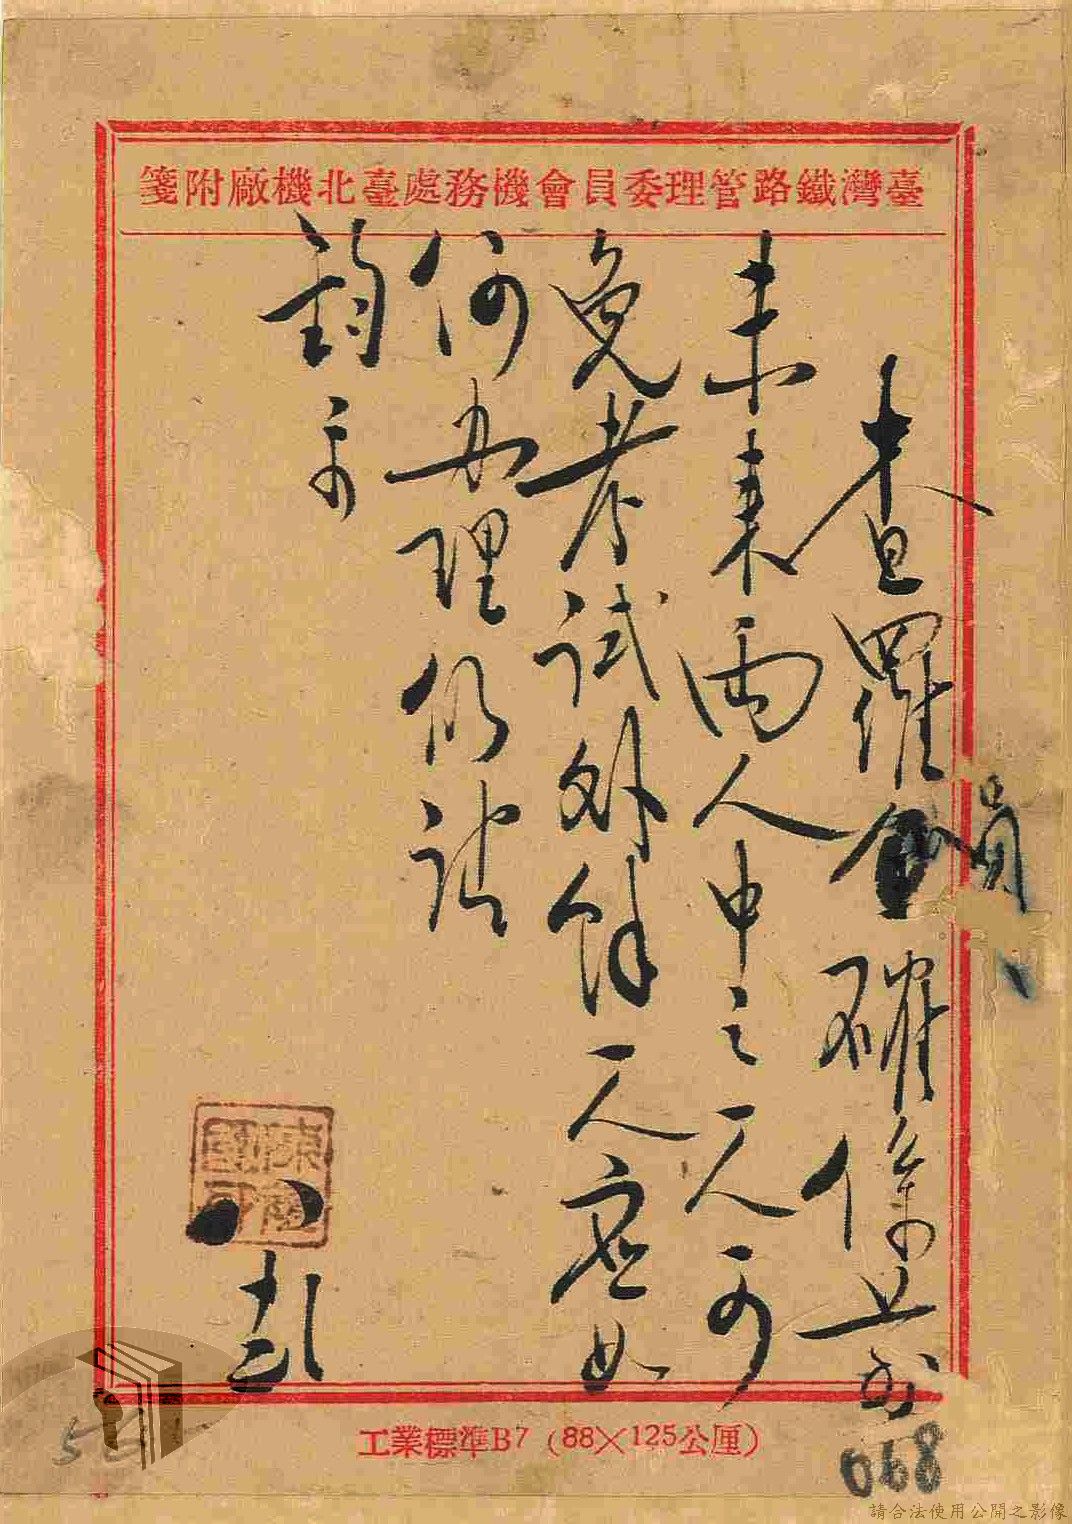 臺灣鐵路管理委員會機務處臺北機廠附箋
查羅金確係並
未來兩人中之一人可
免考試外餘一人應如
何办理仍請
鈞示
工業標準B7(88×125公厘)
068
請合法使用公開之影像